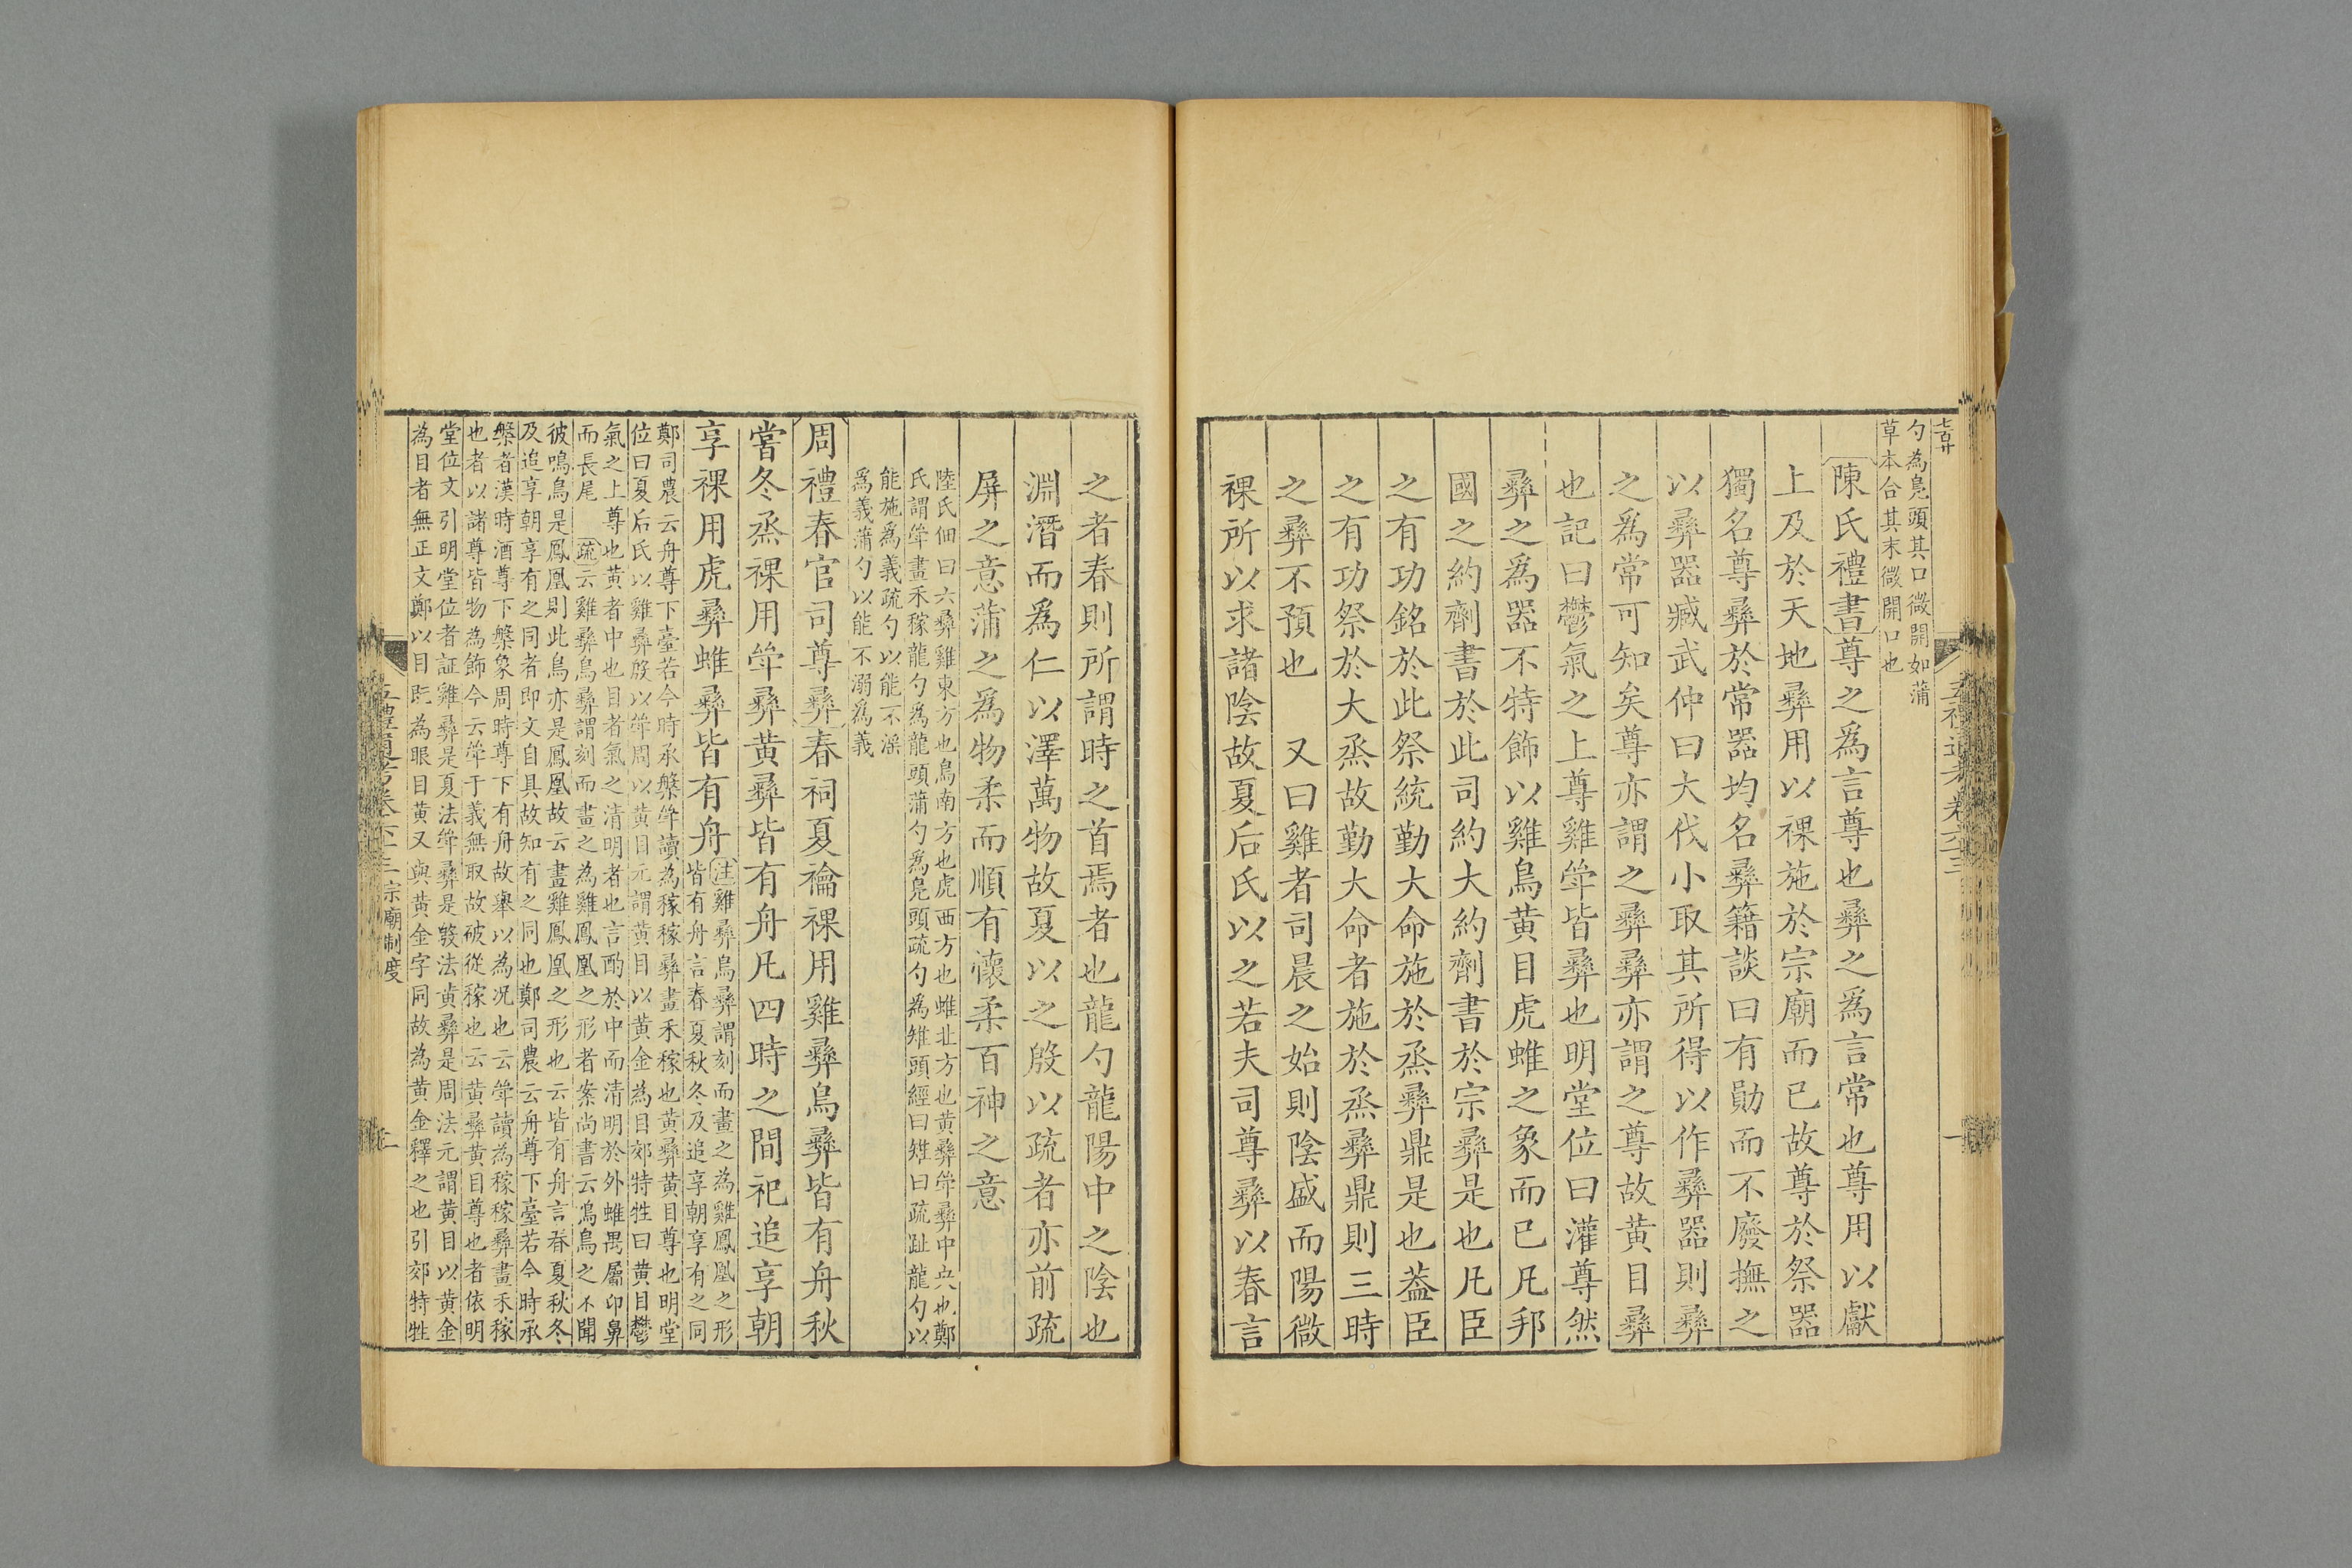 勺為鳧頭其口微開如蒲
草本合其末微開口也
陳氏禮書尊之爲言尊也彝之爲言常也尊用以獻
上及於天地彝用以祼施於宗廟而已故尊於祭器
獨名尊彝於常器均名彝籍談曰有勛而不廢撫之
以彝器臧武仲曰大伐小取其所得以作彝器則彝
之爲常可知矣尊亦謂之彝彝亦謂之尊故黃目彝
也記曰鬱氣之上尊雞斝皆彝也明堂位曰灌尊然
彝之爲器不特飾以雞鳥黃目虎蜼之象而已凡邦
國之約劑書於此司約大約劑書於宗彝是也凡臣
之有功銘於此祭統勤大命施於烝彝鼎是也蓋臣
之有功祭於大烝故勤大命者施於烝彝鼎則三時
之彝不預也 又曰雞者司晨之始則陰盛而陽微
祼所以求諸陰故夏后氏以之若夫司尊彝以春言
之者春則所謂時之首焉者也龍勺龍陽中之陰也
淵潛而爲仁以澤萬物故夏以之殷以疏者亦前疏
屏之意蒲之爲物柔而順有懷柔百神之意
陸氏佃曰六彝雞東方也鳥南方也虎西方也蜼北方也黃彝斝彝中央也鄭
氏謂斝畫禾稼龍勺爲龍頭蒲勺爲鳧頭疏勺為雉頭經曰雉曰疏趾龍勺以
能施爲義疏勺以能不淫
爲義蒲勺以能不溺爲義
周禮春官司尊彝春祠夏禴祼用雞彝鳥彝皆有舟秋
嘗冬烝祼用斝彝黃彝皆有舟凡四時之間祀追享朝
享祼用虎彝蜼彝皆有舟
注雞彝鳥彝謂刻而畫之為雞鳳凰之形
皆有舟言春夏秋冬及追享朝享有之同
鄭司農云舟尊下臺若今時承槃斝讀為稼稼彝畫禾稼也黃彝黃目尊也明堂
位曰夏后氏以雞彝殷以斝周以黃目元謂黃目以黃金為目郊特牲曰黃目鬱
氣之上尊也黃者中也目者氣之清明者也言酌於中而清明於外蜼禺屬卬鼻
而長尾 疏云雞彝鳥彝謂刻而畫之為雞鳳凰之形者案尚書云鳴鳥之不聞
彼鳴鳥是鳳凰則此鳥亦是鳳凰故云畫雞鳳凰之形也云皆有舟言春夏秋冬
及追享朝享有之同者即文自具故知有之同也鄭司農云舟尊下臺若今時承
槃者漢時酒尊下槃象周時尊下有舟故舉以為況也云斝讀為稼稼彝畫禾稼
也者以諸尊皆物為飾今云斝于義無取故破從稼也云黃彝黃目尊也者依明
堂位文引明堂位者証雞彝是夏法斝彝是殷法黃彝是周法元謂黃目以黃金
為目者無正文鄭以目既為眼目黃又與黃金字同故為黃金釋之也引郊特牲
宗廟制度